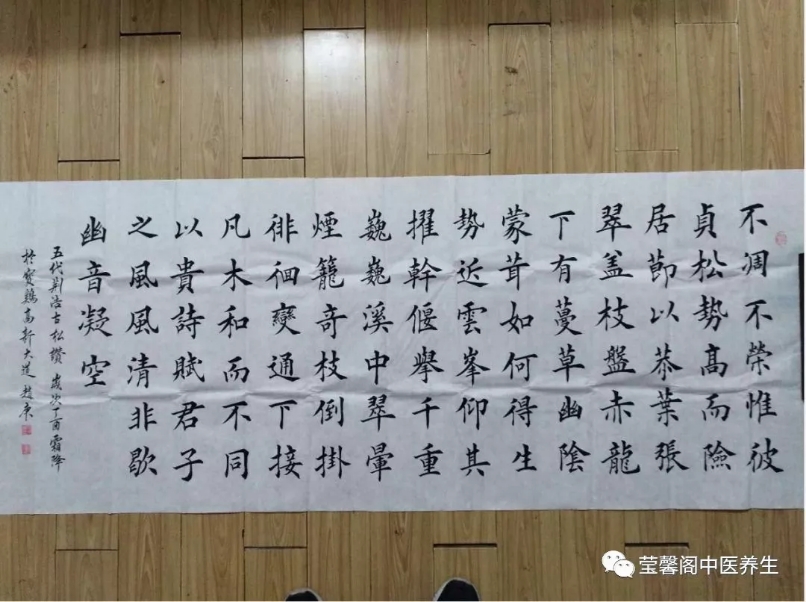 不凋不榮惟彼
貞松勢髙而險
居莭以恭葉張
翠盖枝盤赤龍
下有蔓草幽陰
蒙茸如何得生
勢近雲峯仰其
擢幹偃舉千重
巍巍溪中翠暈
煙籠竒枝倒掛
徘徊變通下接
凡木和而不同
以貴詩賦君子
之風風清非歇
幽音凝空
五代荆浩古松讚 歲次丁酉霜降
於寳鷄高新大道 趙
莹馨阁中医养生